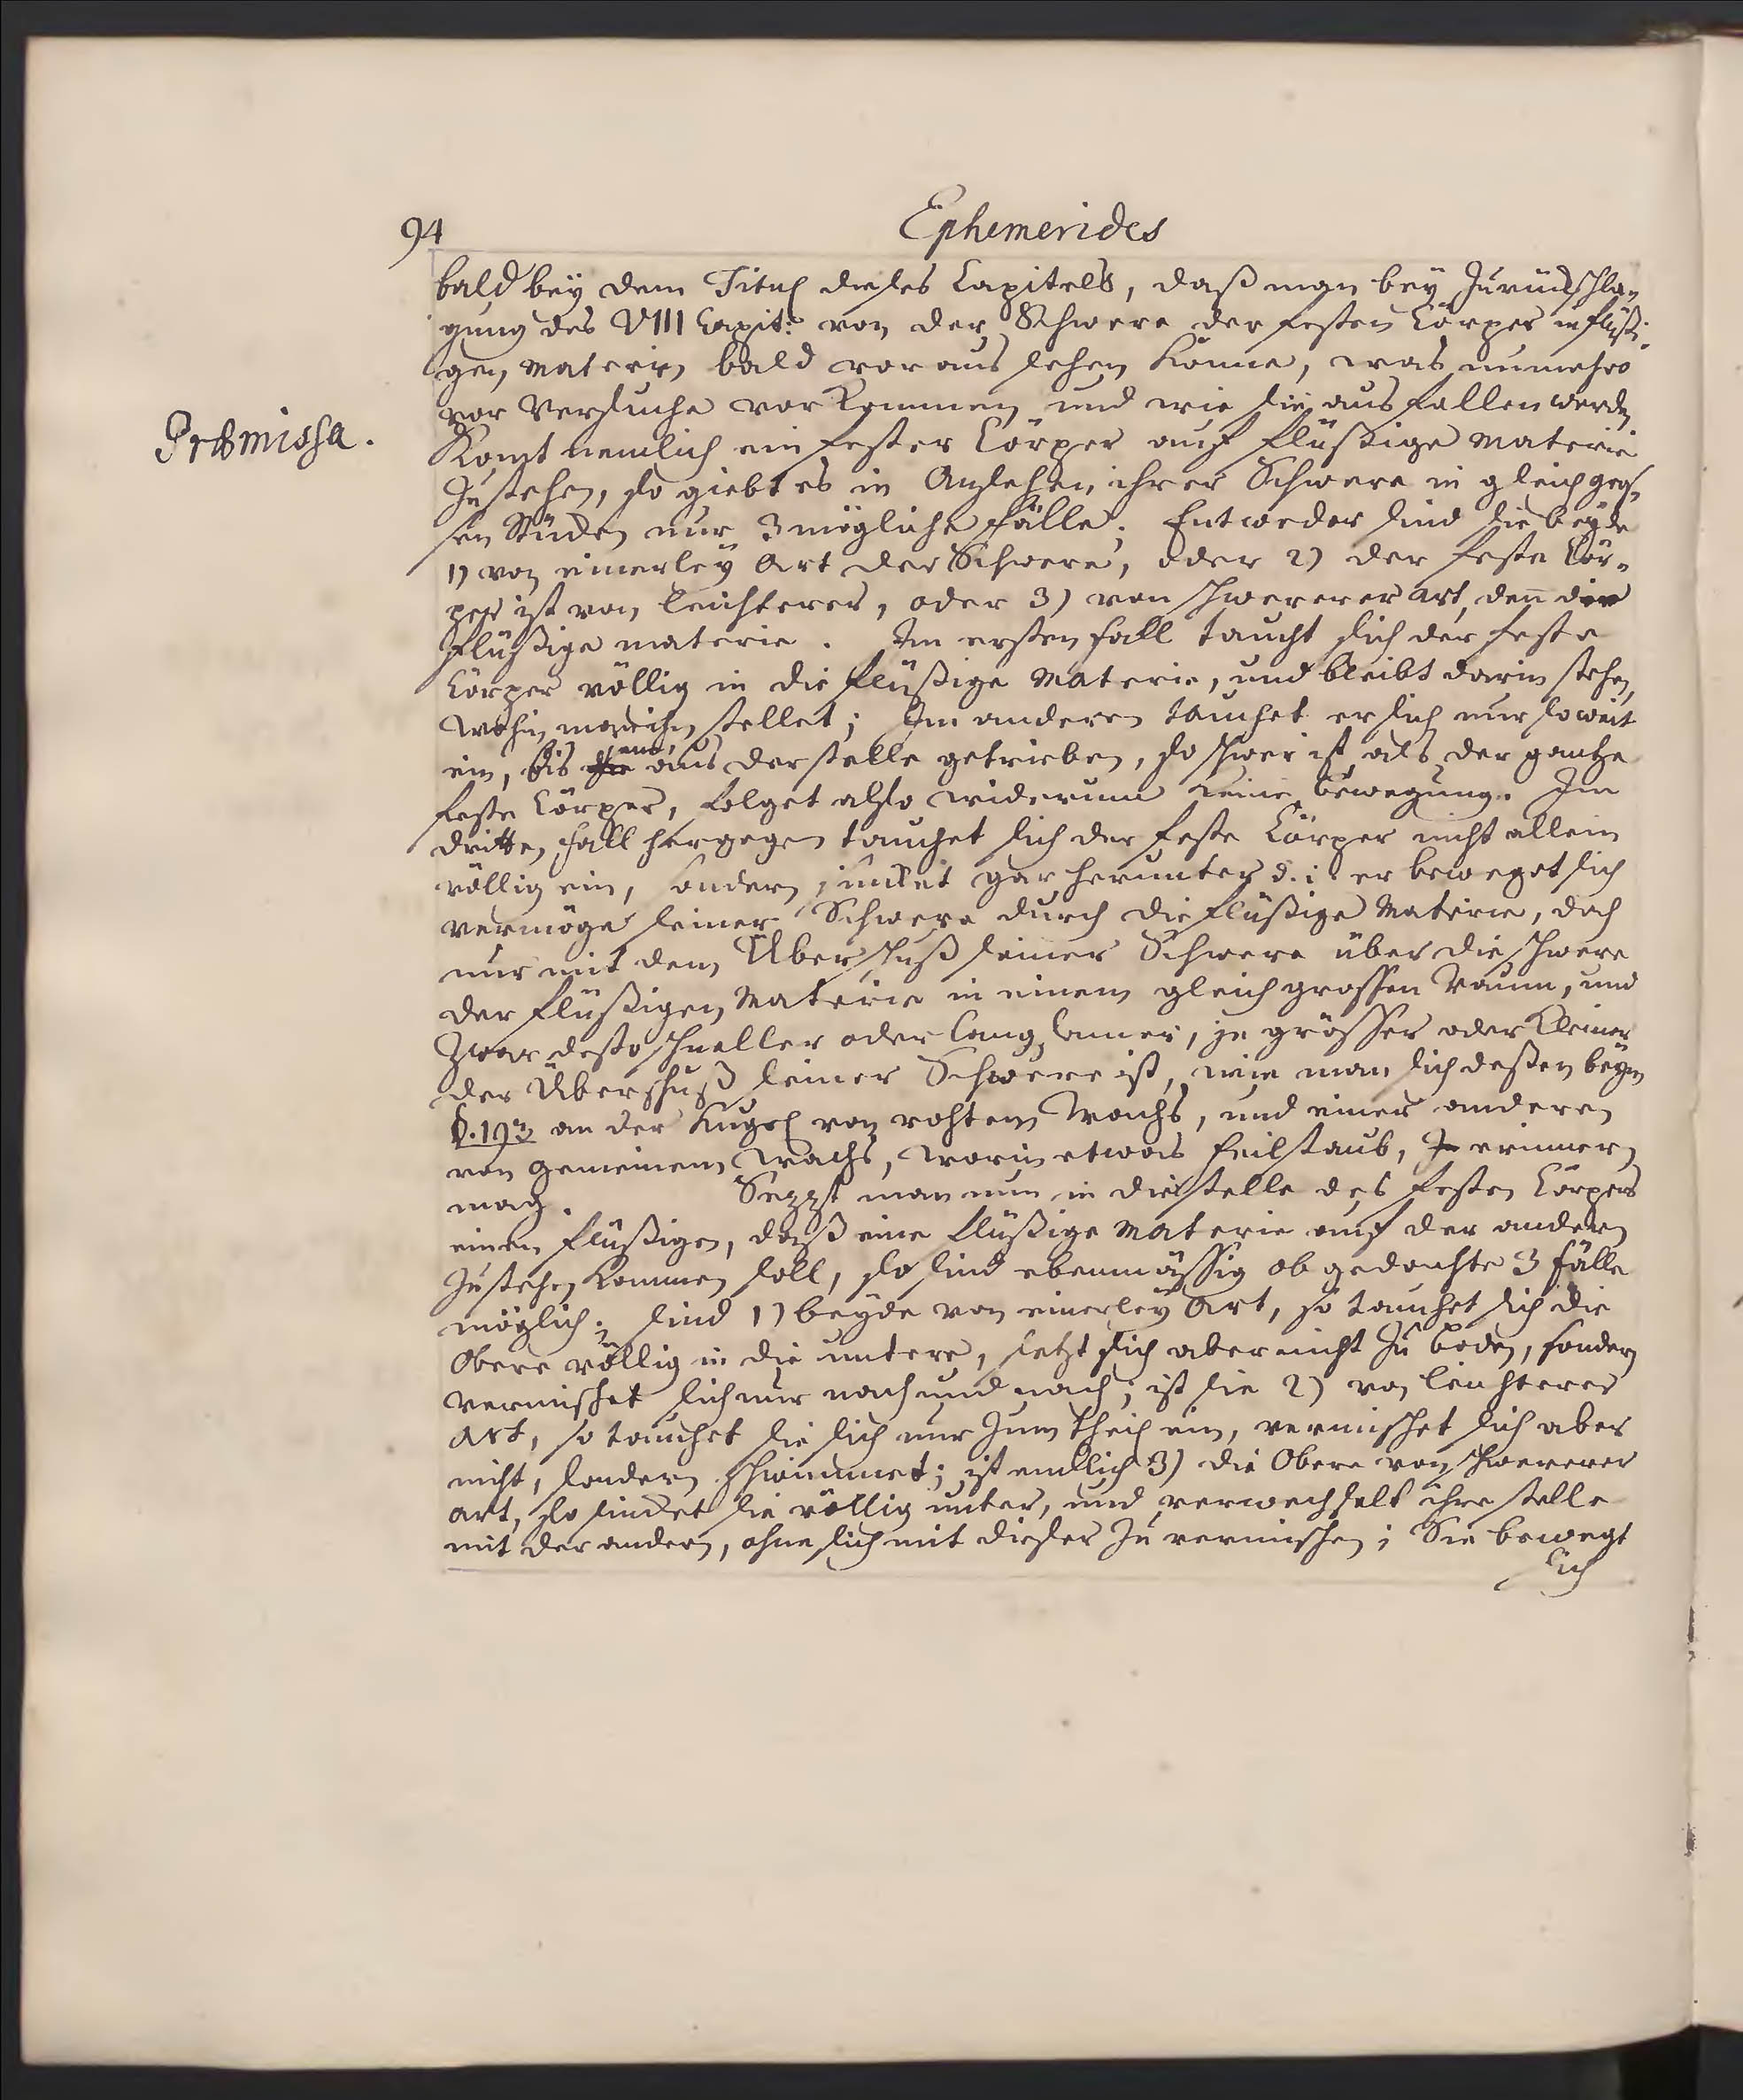 94
Ephemerides
bald bey dem Titul dieses Capitels, daß man bey Zurückschla-
gung des VIII Capit: von der Schwere der festen Cörper in flüßi-
gen Materien bald voraus sehen könne, was nunmehro
vor Versuche vorkommen und wie sie ausfallen werden
Præmissa.
Komt nemlich ein fester Cörper auf flüßige Materie
zu stehen, so giebt es in Ansehen ihrer Schwere in gleich gros-
sen Stücken nur 3 mögliche Fälle; Entweder sind sie beyde
1) von einerley Art der Schwere, oder 2) der feste Cör-
per ist von leichterer, oder 3) von schwererer art, deñ die
flüßige materie. Im ersten Fall taucht sich der feste
Cörper völlig in die flüßige Materie, und bleibt darin stehen,
wohin man ihn stellet; Im anderen tauchet er sich nur so weit
ein, bis aus der stelle getrieben, so schwer ist, als der gantze
feste Cörper, folget also widerum keine bewegung. Im
dritten Fall hergegen tauchet sich der feste Cörper nicht allein
völlig ein, sondern sincket gar herunter d. i. er beweget sich
vermöge seiner Schwere durch die flüßige Materie, doch
nur mit dem Überschuß seiner Schwere über die schwere
der flüßigen Materie in einem gleich grossen Raum, und
zwar desto schneller oder langsamer, je grösser oder kleiner
der Überschuß seiner Schwere ist, wie man sich deßen beym
§. 193 an der Kugel von rohtem Wachs, und einer anderen
von gemeinem Wachs, worin etwas feilstaub, erinnern
mag. Sezzt man nun in die stelle des festen Cörpers
einen flüßigen, daß eine flüßige Materie auf der andern
zu stehen kommen soll, so sind ebenmässig obgedachte 3 Fälle
möglich; sind 1) beyde von einerley Art, so tauchet sich die
Obere völlig in die untere, setzt sich aber nicht zu boden, sondern
vermischet sich nur nach und nach; ist sie 2) von leichterer
Art, so tauchet sie sich nur zum theil ein, vermischet sich aber
nicht, sondern schwimmet; ist endlich 3) die Obere von schwererer
art, so sincket sie völlig unter, und verwechselt ihre stelle
mit der andern, ohne sich mit dieser zu vermischen; Sie bewegt
sich